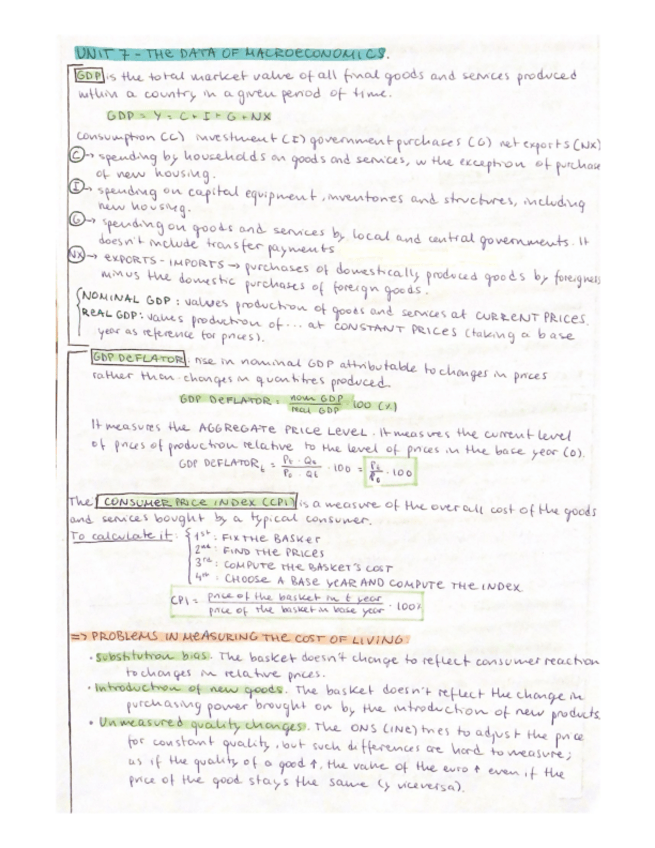 UNIT 7 - THE DATA OF MACROECONOMICS.
GDP is the total market value of all final goods and services produced
within a country in a given period of time.
GDP = Y = C + I + G + NX
Consumption (C) investment (I) government purchases (G) net exports (NX)
C → spending by households on goods and services, w the exception of purchase
of new housing.
I → spending on capital equipment, inventories and structures, including
new housing.
G → spending on goods and services by local and central governments. It
doesn't include transfer payments
NX → EXPORTS - IMPORTS → purchases of domestically produced goods by foreigners
minus the domestic purchases of foreign goods.
NOMINAL GDP: values production of goods and services at CURRENT PRICES.
REAL GDP: values production of ... at CONSTANT PRICES (taking a base
year as reference for prices).
GDP DEFLATOR: rise in nominal GDP attributable to changes in prices
rather than changes in quantities produced.
GDP DEFLATOR: nom GDP / real GDP · 100 (%)
It measures the AGGREGATE PRICE LEVEL. It measures the current level
of prices of production relative to the level of prices in the base year (0).
GDP DEFLATORt = Pt · Qt / P0 · Qt · 100 = Pt / P0 · 100
The CONSUMER PRICE INDEX (CPI) is a measure of the overall cost of the goods
and services bought by a typical consumer.
To calculate it: 1st: FIX THE BASKER
2nd: FIND THE PRICES
3rd: COMPUTE THE BASKET'S COST
4th: CHOOSE A BASE YEAR AND COMPUTE THE INDEX
CPI = price of the basket in t year / price of the basket in base year · 100%
=> PROBLEMS IN MEASURING THE COST OF LIVING:
· Substitution bias. The basket doesn't change to reflect consumer reaction
to changes in relative prices.
· Introduction of new goods. The basket doesn't reflect the change in
purchasing power brought on by the introduction of new products.
· Unmeasured quality changes. The ONS (INE) tries to adjust the price
for constant quality, but such differences are hard to measure;
as if the quality of a good ↑, the value of the euro ↑ even if the
price of the good stays the same (y viceversa).